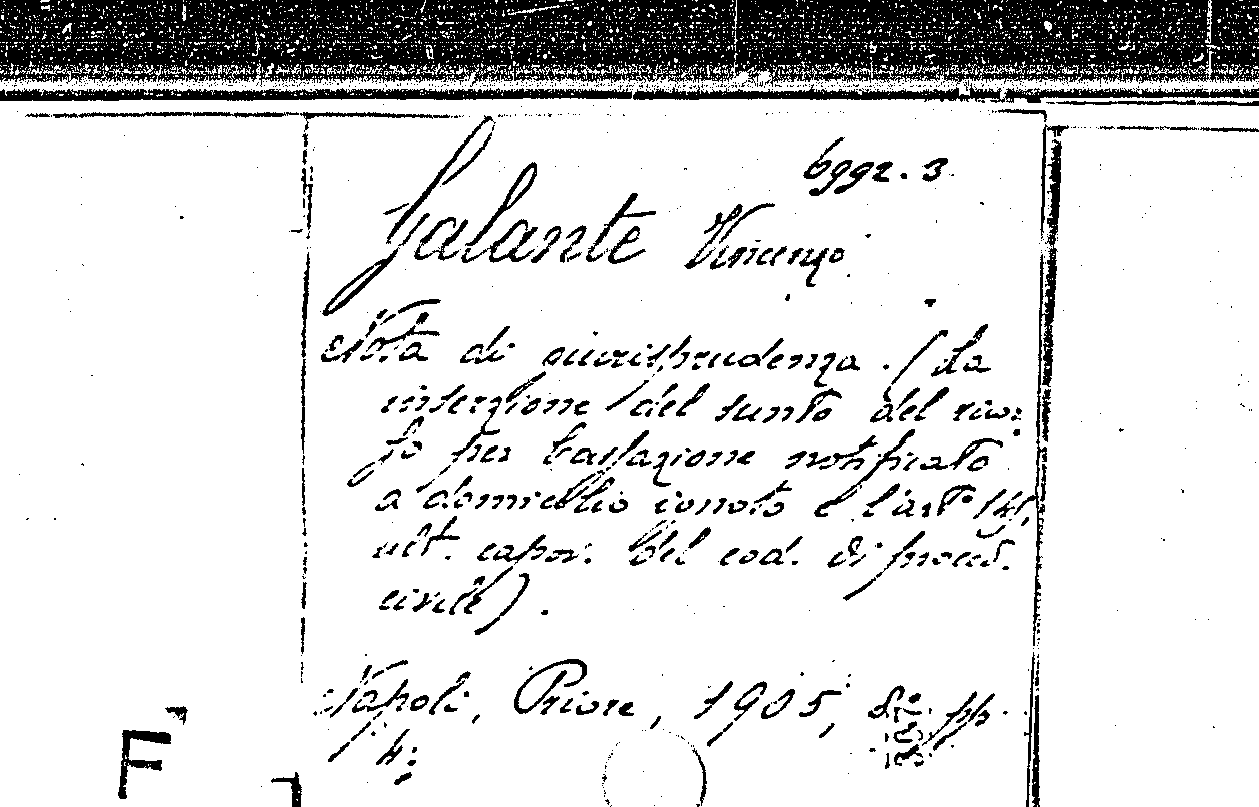 6992.3
Galante Vincenzo
Nota di giurisprudenza. (La
inserzione del sunto del ricor:
so per Cassazione notificato
a domicilio ignoto e l'art° 141,
ult. capov. del cod. di proced.
civile).
Napoli, Priore, 1905, 8° pp.
4:
F